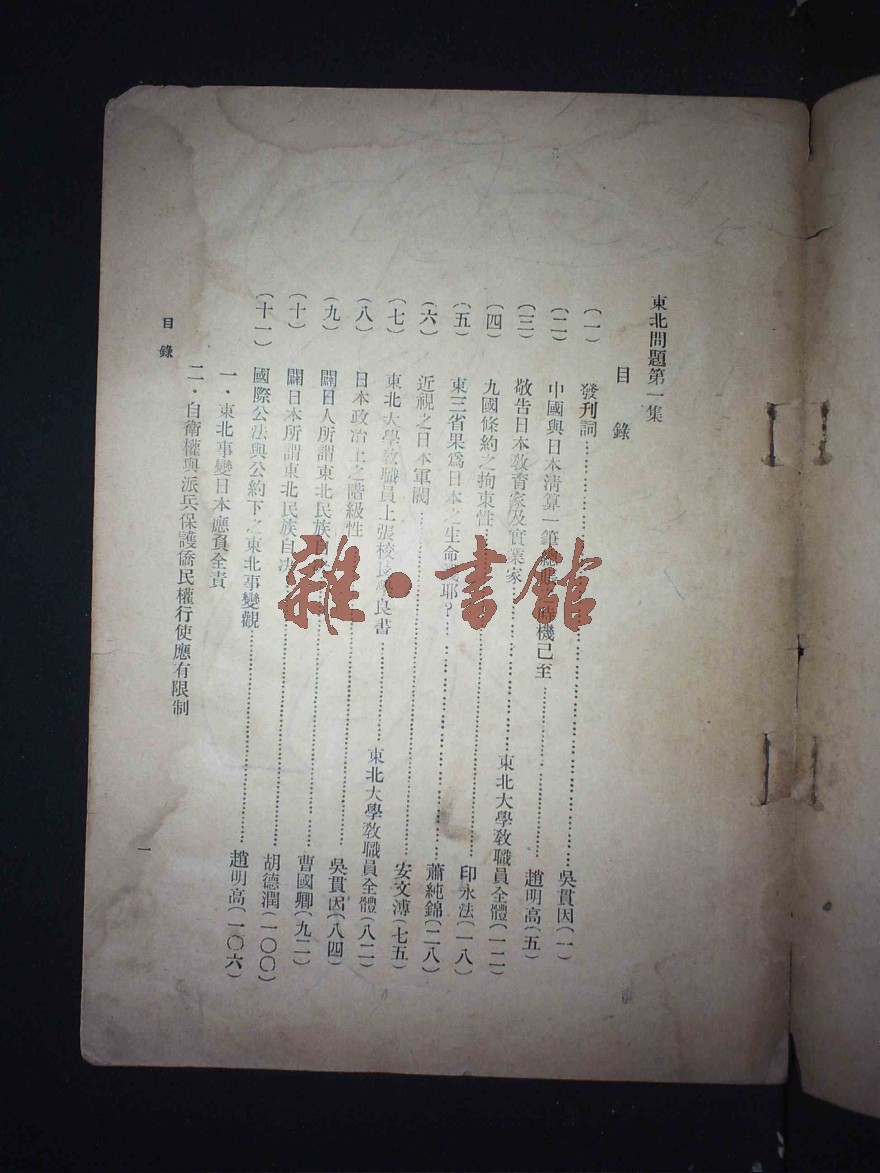 東北問題第一集
目錄
(一) 發刊詞……吳貫因(一)
(二) 中國與日本清算一筆總 機已至……趙明高(五)
(三) 敬告日本教育家及實業家……東北大學教職員全體(一二)
(四) 九國條約之拘束性……印永法(一八)
(五) 東三省果爲日本之生命 耶?……蕭純錦(二八)
(六) 近視之日本軍閥……安文溥(七五)
(七) 東北大學教職員上張校長學良書……東北大學教職員全體(八二)
(八) 日本政治上之階級性……吳貫因(八四)
(九) 闢日人所謂東北民族自……曹國卿(九二)
(十) 闢日本所謂東北民族自決……胡德潤(一〇〇)
(十一) 國際公法與公約下之東北事變觀……趙明高(一〇六)
一.東北事變日本應負全責
二.自衛權與派兵保護僑民權行使應有限制
目錄
一
雜·書館